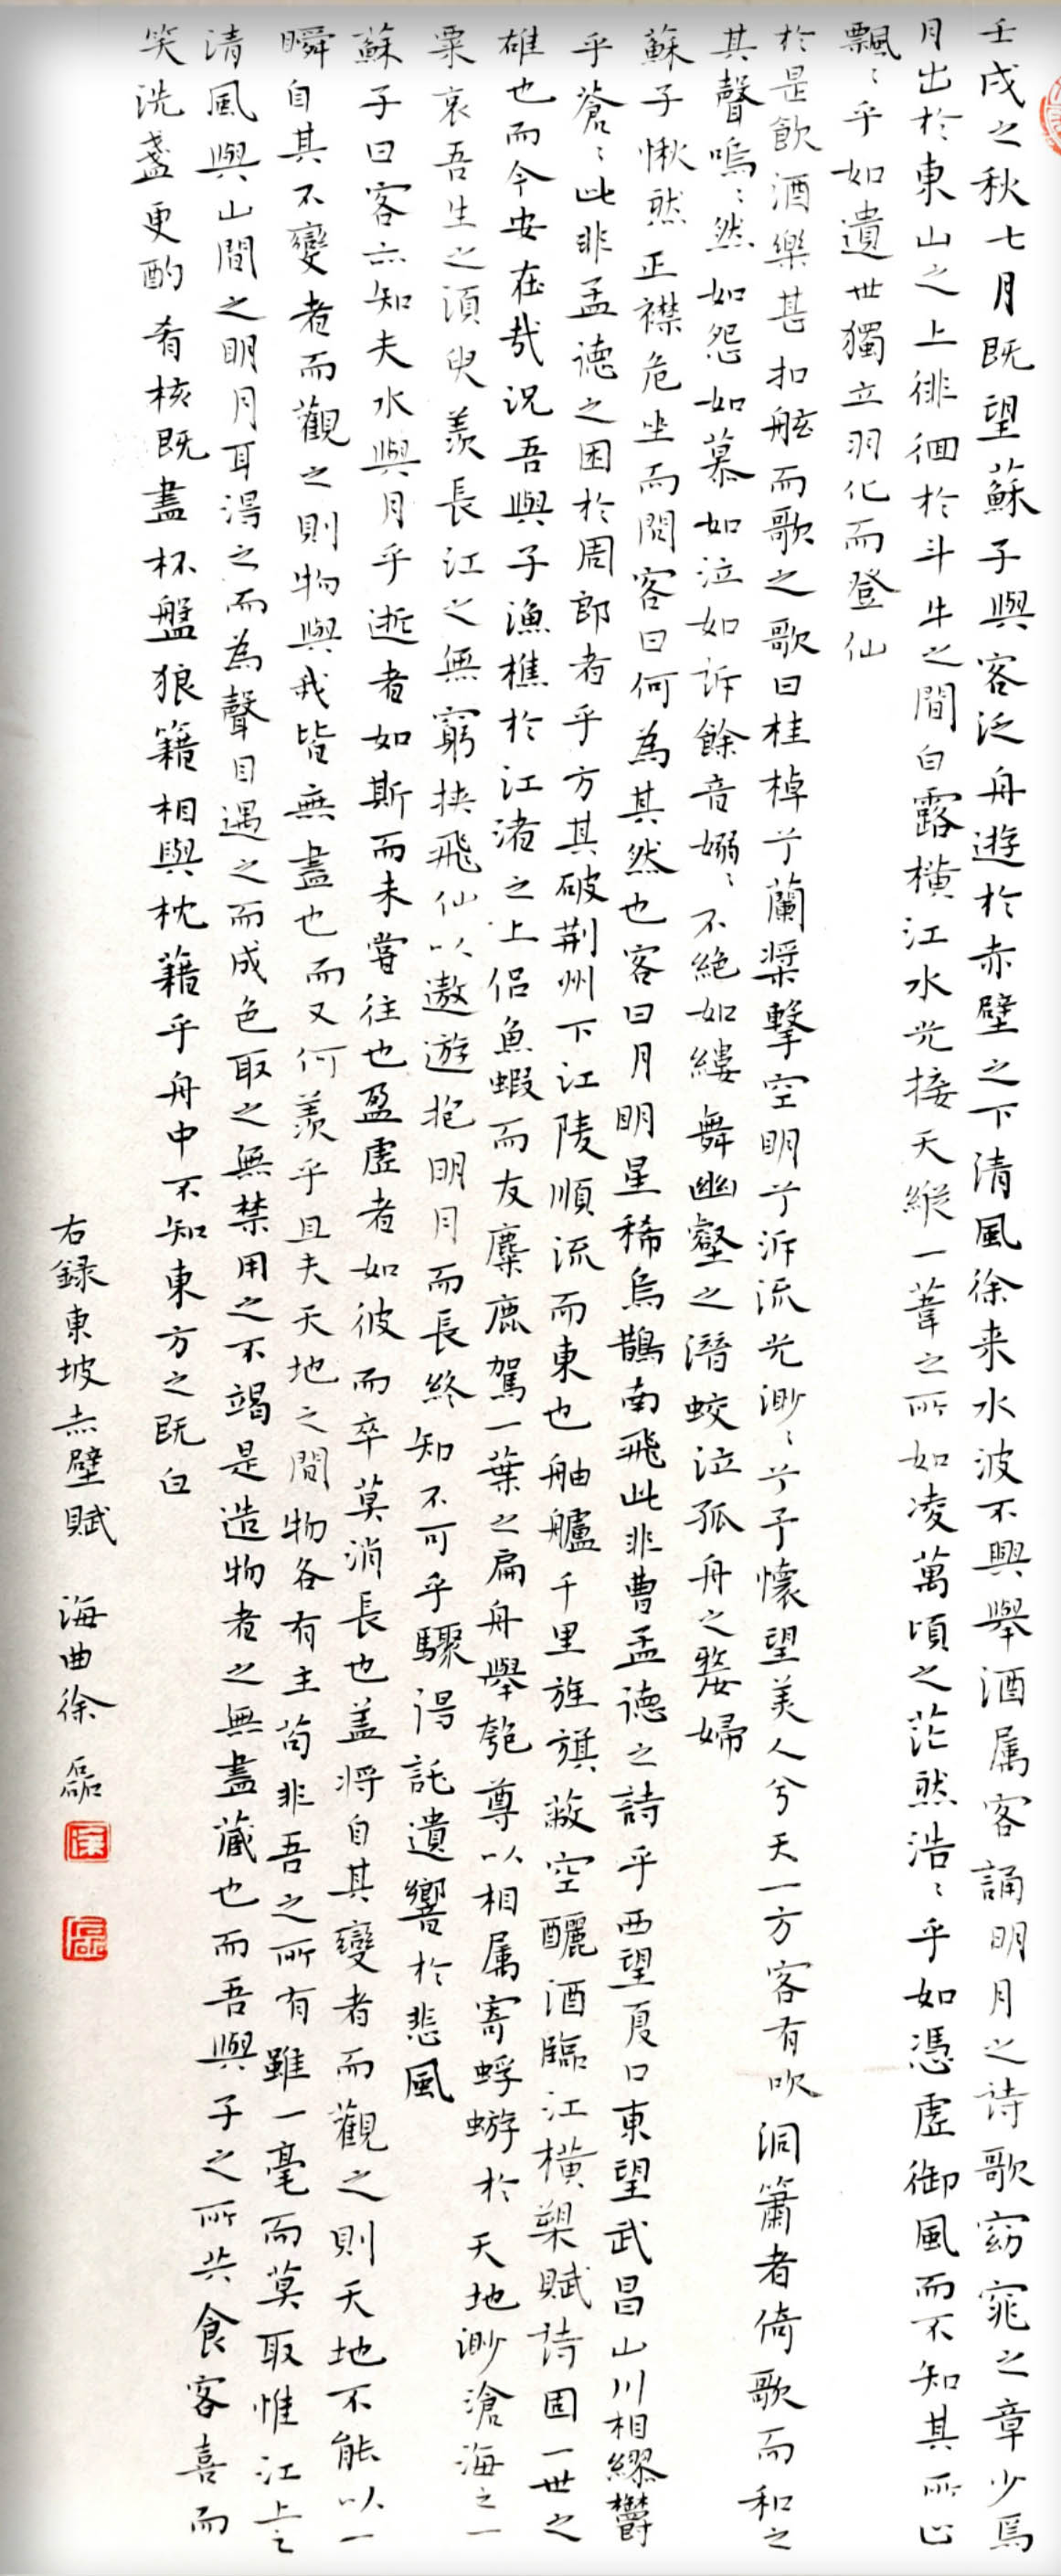 壬戌之秋七月既望蘇子與客泛舟遊於赤壁之下清風徐来水波不興舉酒属客誦明月之诗歌窈窕之章少焉
月出於東山之上徘徊於斗牛之間白露橫江水光接天縱一葦之所如凌萬頃之茫然浩〻乎如憑虛御風而不知其所止
飄〻乎如遺世獨立羽化而登仙
於是飲酒樂甚扣舷而歌之歌曰桂棹兮蘭槳擊空明兮泝流光渺〻兮予懷望美人兮天一方客有吹洞簫者倚歌而和之
其聲嗚〻然如怨如慕如泣如訴餘音嫋〻不絕如縷舞幽壑之潛蛟泣孤舟之嫠婦
蘇子愀然正襟危坐而問客曰何為其然也客曰月明星稀烏鵲南飛此非曹孟德之詩乎西望夏口東望武昌山川相繆欝
乎蒼〻此非孟德之困於周郎者乎方其破荆州下江陵順流而東也舳艫千里旌旗蔽空釃酒臨江橫槊賦诗固一世之
雄也而今安在哉況吾與子漁樵於江渚之上侣魚蝦而友麋鹿駕一葉之扁舟舉匏尊以相属寄蜉蝣於天地渺滄海之一
粟哀吾生之須臾羨長江之無窮挾飛仙以遨遊抱明月而長終知不可乎驟得託遺響於悲風
蘇子曰客亦知夫水與月乎逝者如斯而未嘗往也盈虛者如彼而卒莫消長也盖將自其變者而觀之則天地不能以一
瞬自其不變者而觀之則物與我皆無盡也而又何羨乎且夫天地之間物各有主苟非吾之所有雖一毫而莫取惟江上之
清風與山間之明月耳得之而為聲目遇之而成色取之無禁用之不竭是造物者之無盡藏也而吾與子之所共食客喜而
笑洗盞更酌肴核既盡杯盤狼籍相與枕籍乎舟中不知東方之既白
右録東坡赤壁賦 海曲徐磊